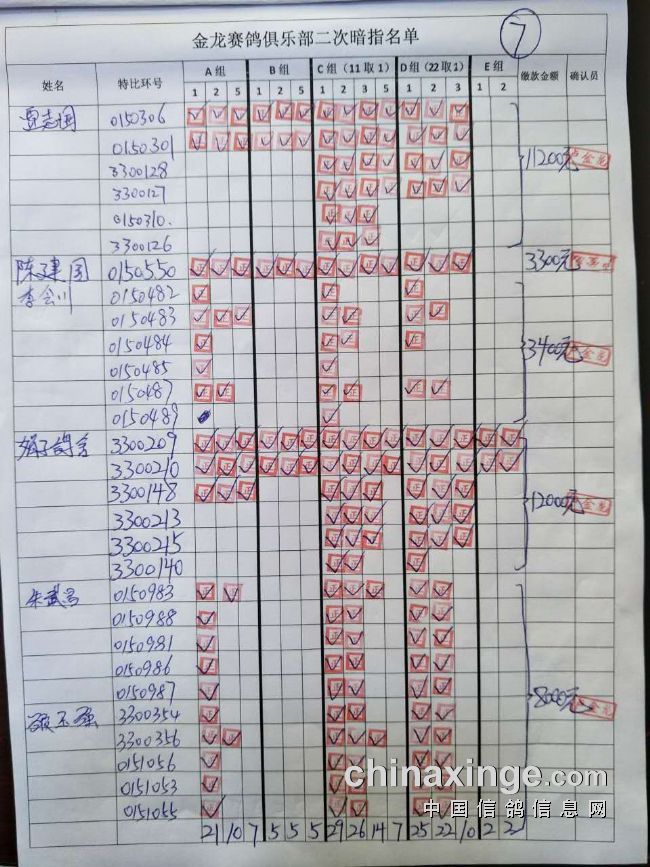 金龙赛鸽俱乐部二次暗指名单
7
姓名 特比环号 A 组 B 组 C 组（11 取 1） D 组（22 取 1） E 组 缴款金额 确认员
1 2 5 1 2 5 1 2 3 5 1 2 3 1 2
0150306
0150301
3300128 11200元
3300127
0150310.
3300126
陈建国 0150550 3300元
李会川 0150482
0150483
0150484 3400元
0150485
0150487
0150489
3300209
3300210
3300148 12000元
3300213
3300245
3300140
0150983
0150988
0150981
0150986
0150987 8000元
3300354
3300356
0151056
0151053
0151055
21 10 7 5 5 5 29 26 14 7 25 22 10 2 2
chinaxinge.com
中国信鸽信息网